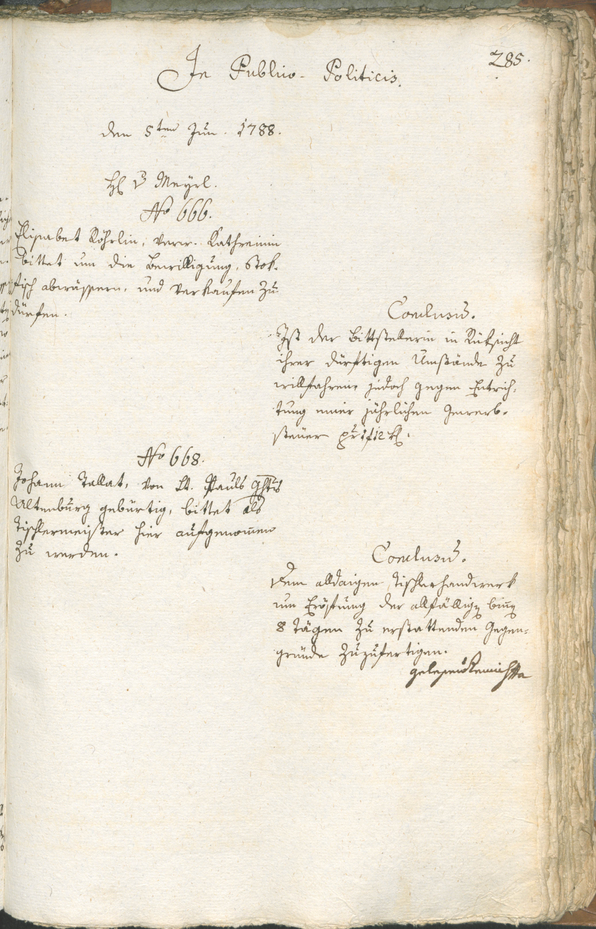 285.
In Publico-Politicis.
den 5ten Jun. 1788.
H v Meyrl.
No 666.
Elisabet Röhrlin, verw. Kathreinin
bittet um die Bewilligung, Stok-
fisch abwässern, und verkaufen zu
dürfen.
Conclusū.
Ist der Bittstellerin in Rüksicht
ihrer dürftigen Umstände zu
willfahren, jedoch gegen Entrich-
tung einer jährlichen Gewerb-
steuer pr 1 f 12 k.
No 668.
Johann Tallat, von St. Pauls Ghts
Altenburg gebürtig, bittet als
Tischlermeister hier aufgenom̄en
zu werden.
Conclusū.
Dem alldaigen Tischlerhandwerk
um der allfällig binn
8 Tägen zu erstattenden Gegen-
gründe zuzufertigen.